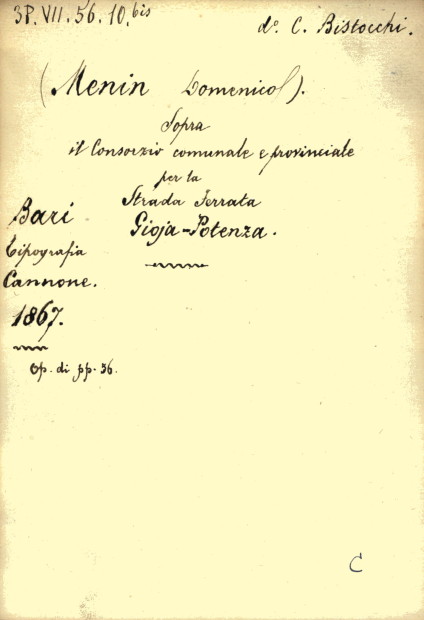 3P. VII. 56. 10. bis
do. C. Bistocchi.
(Menin Domenico).
Sopra
il Consorzio comunale e provinciale
per la
Strada Ferrata
Gioja-Potenza.
Bari
Tipografia
Cannone.
1867.
Op. di pp. 36.
C